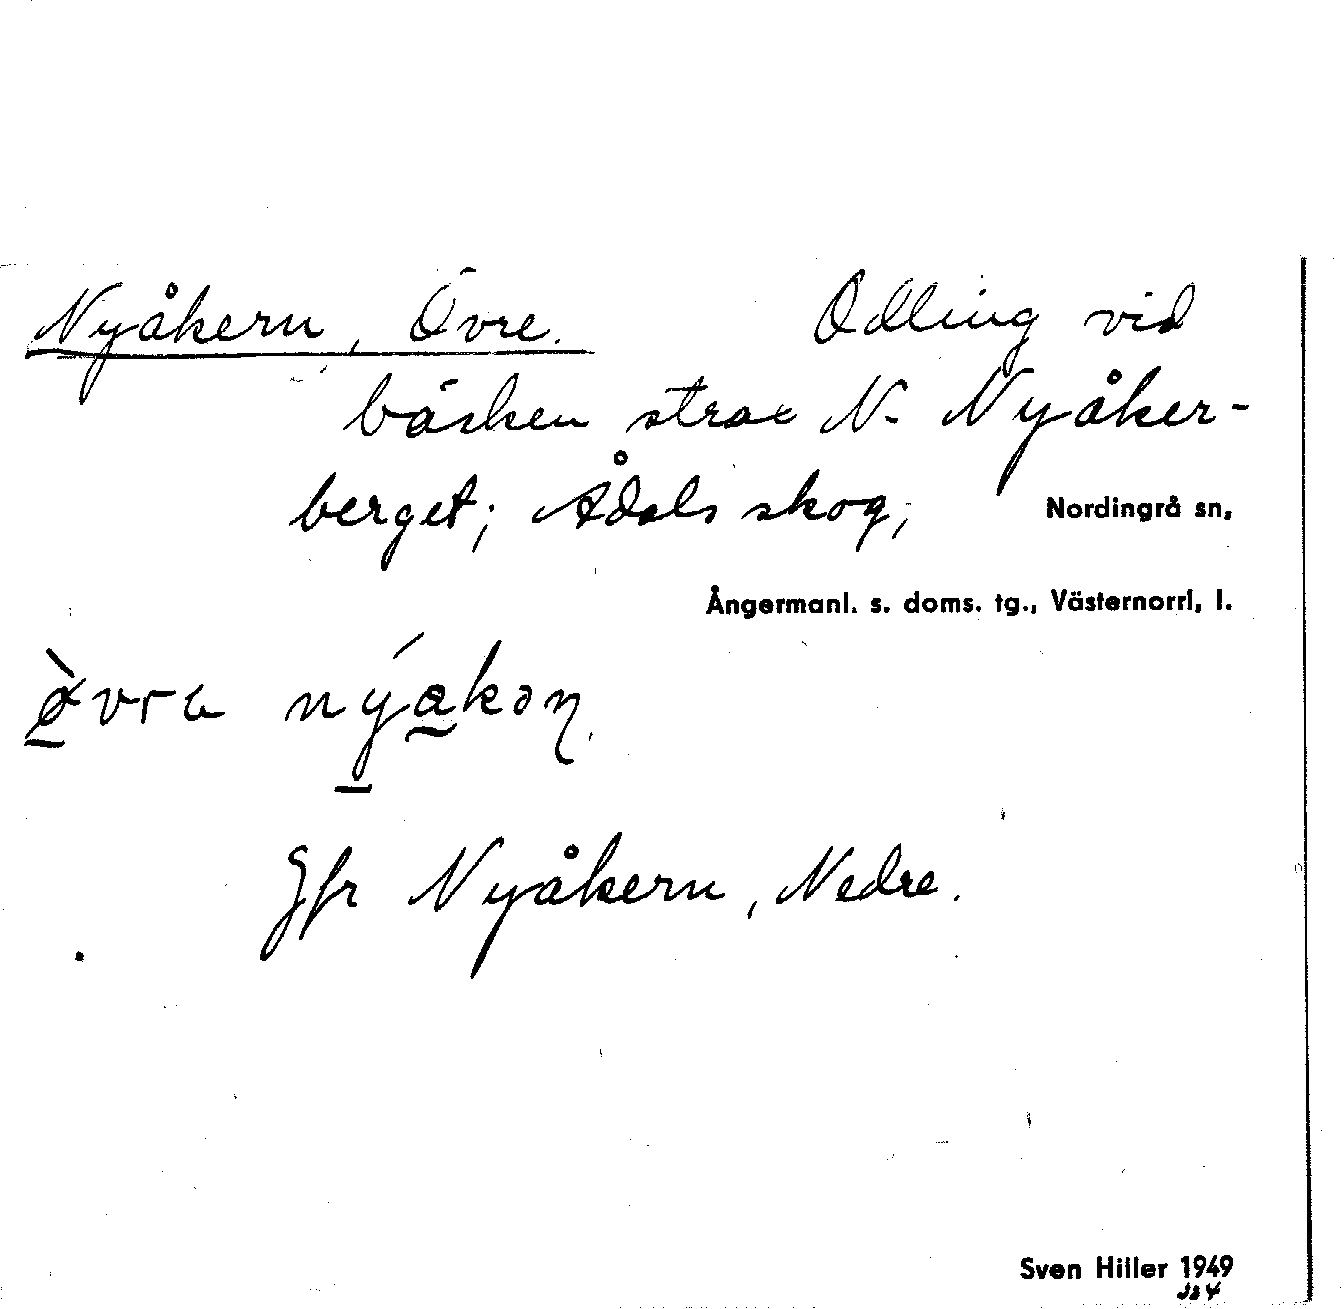 Nyåkern, Övre. Odling vid
bäcken strax N. Nyåker-
berget; Ådals skog; Nordingrå sn,
Ångermanl. s. doms. tg., Västernorrl, l.
nýakon
Jfr Nyåkern, Nedre.
Sven Hiller 1949